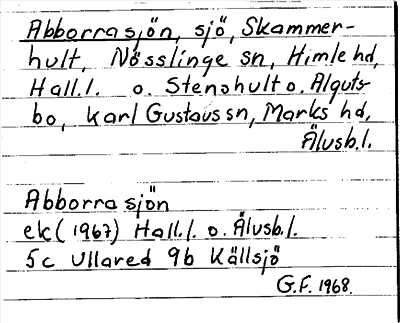 Abborrasjön, sjö, Skammer-
hult, Nösslinge sn, Himle hd,
Hall.l. o. Stenshult o. Alguts-
bo, Karl Gustavs sn, Marks hd,
Älvsb.l.
Abborrasjön
ek (1967) Hall.l. o. Älvsb.l.
5c Ullared 9b Källsjö
G.F. 1968.